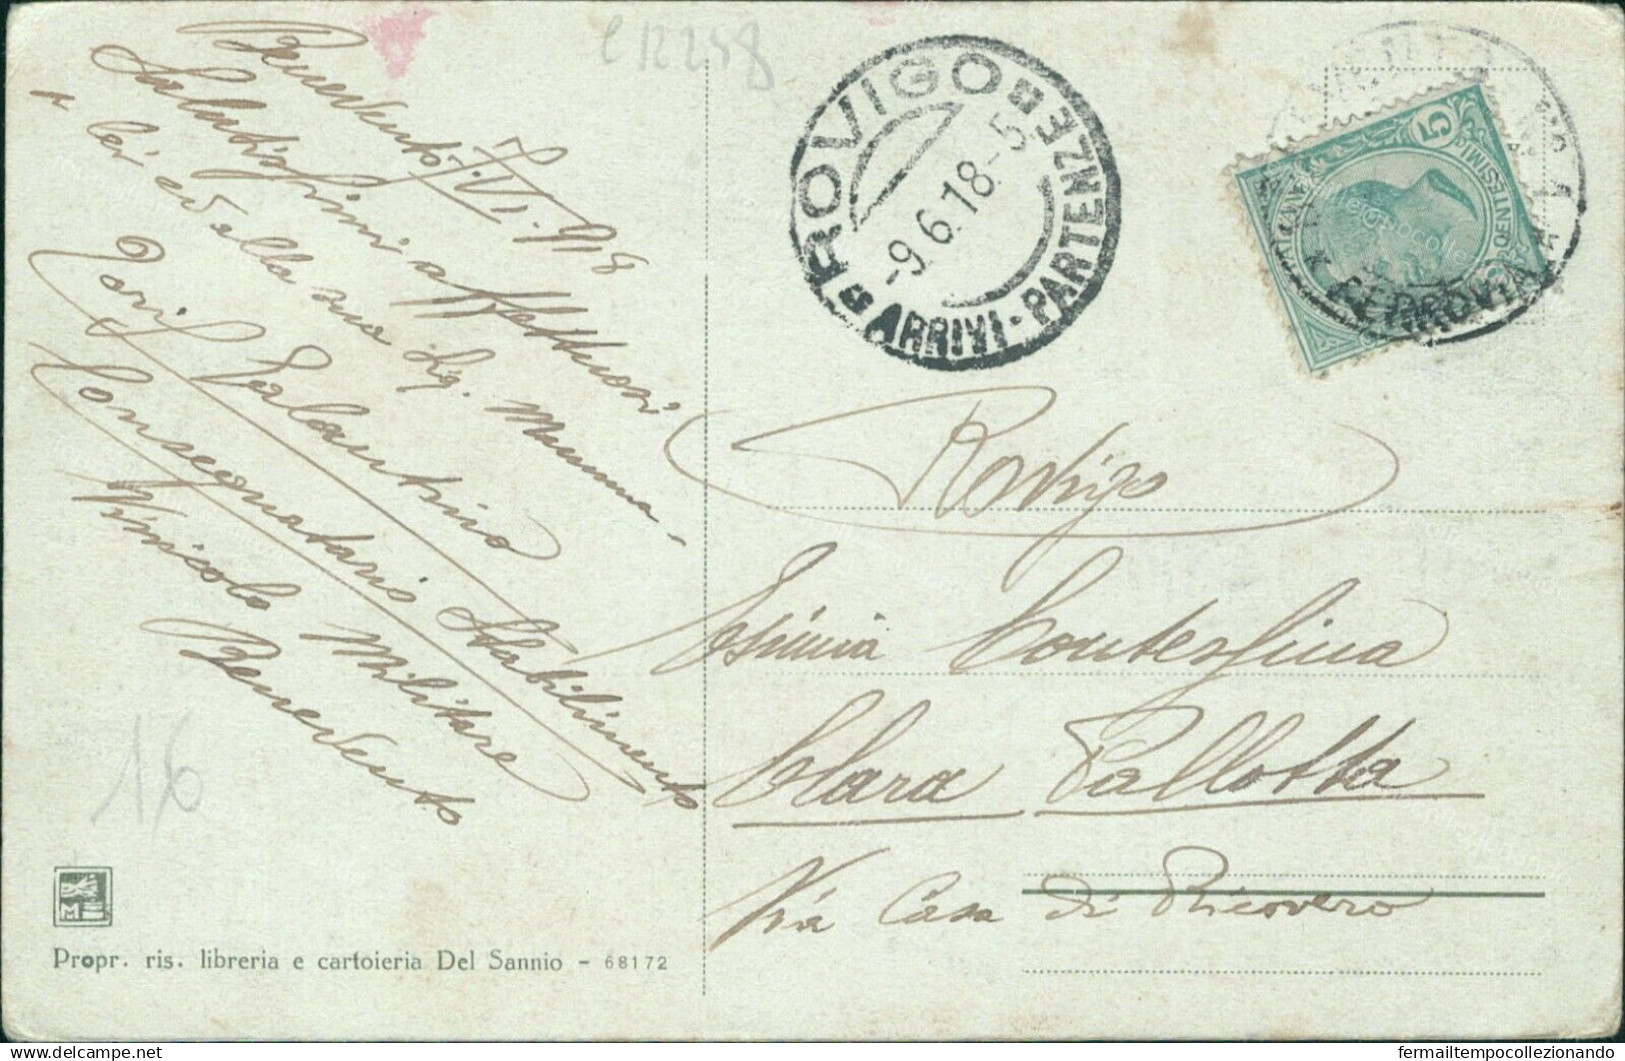 e 12258
Benevento 7.VI.918
Salutissimi affettuosi
a lei e della sua Sig. Mamma -
Galantino
Consegnatario Stabilimento
Vinicolo Militare
Benevento
16
M
Propr. ris. libreria e cartoieria Del Sannio - 68172
ROVIGO
-9.6.18-5
ARRIVI-PARTENZE
5
CENTESIMI
FERROVIA
Rovigo
Esimia Contessina
Clara Pallotta
Via Casa di Ricovero
fermailtempocollezionando